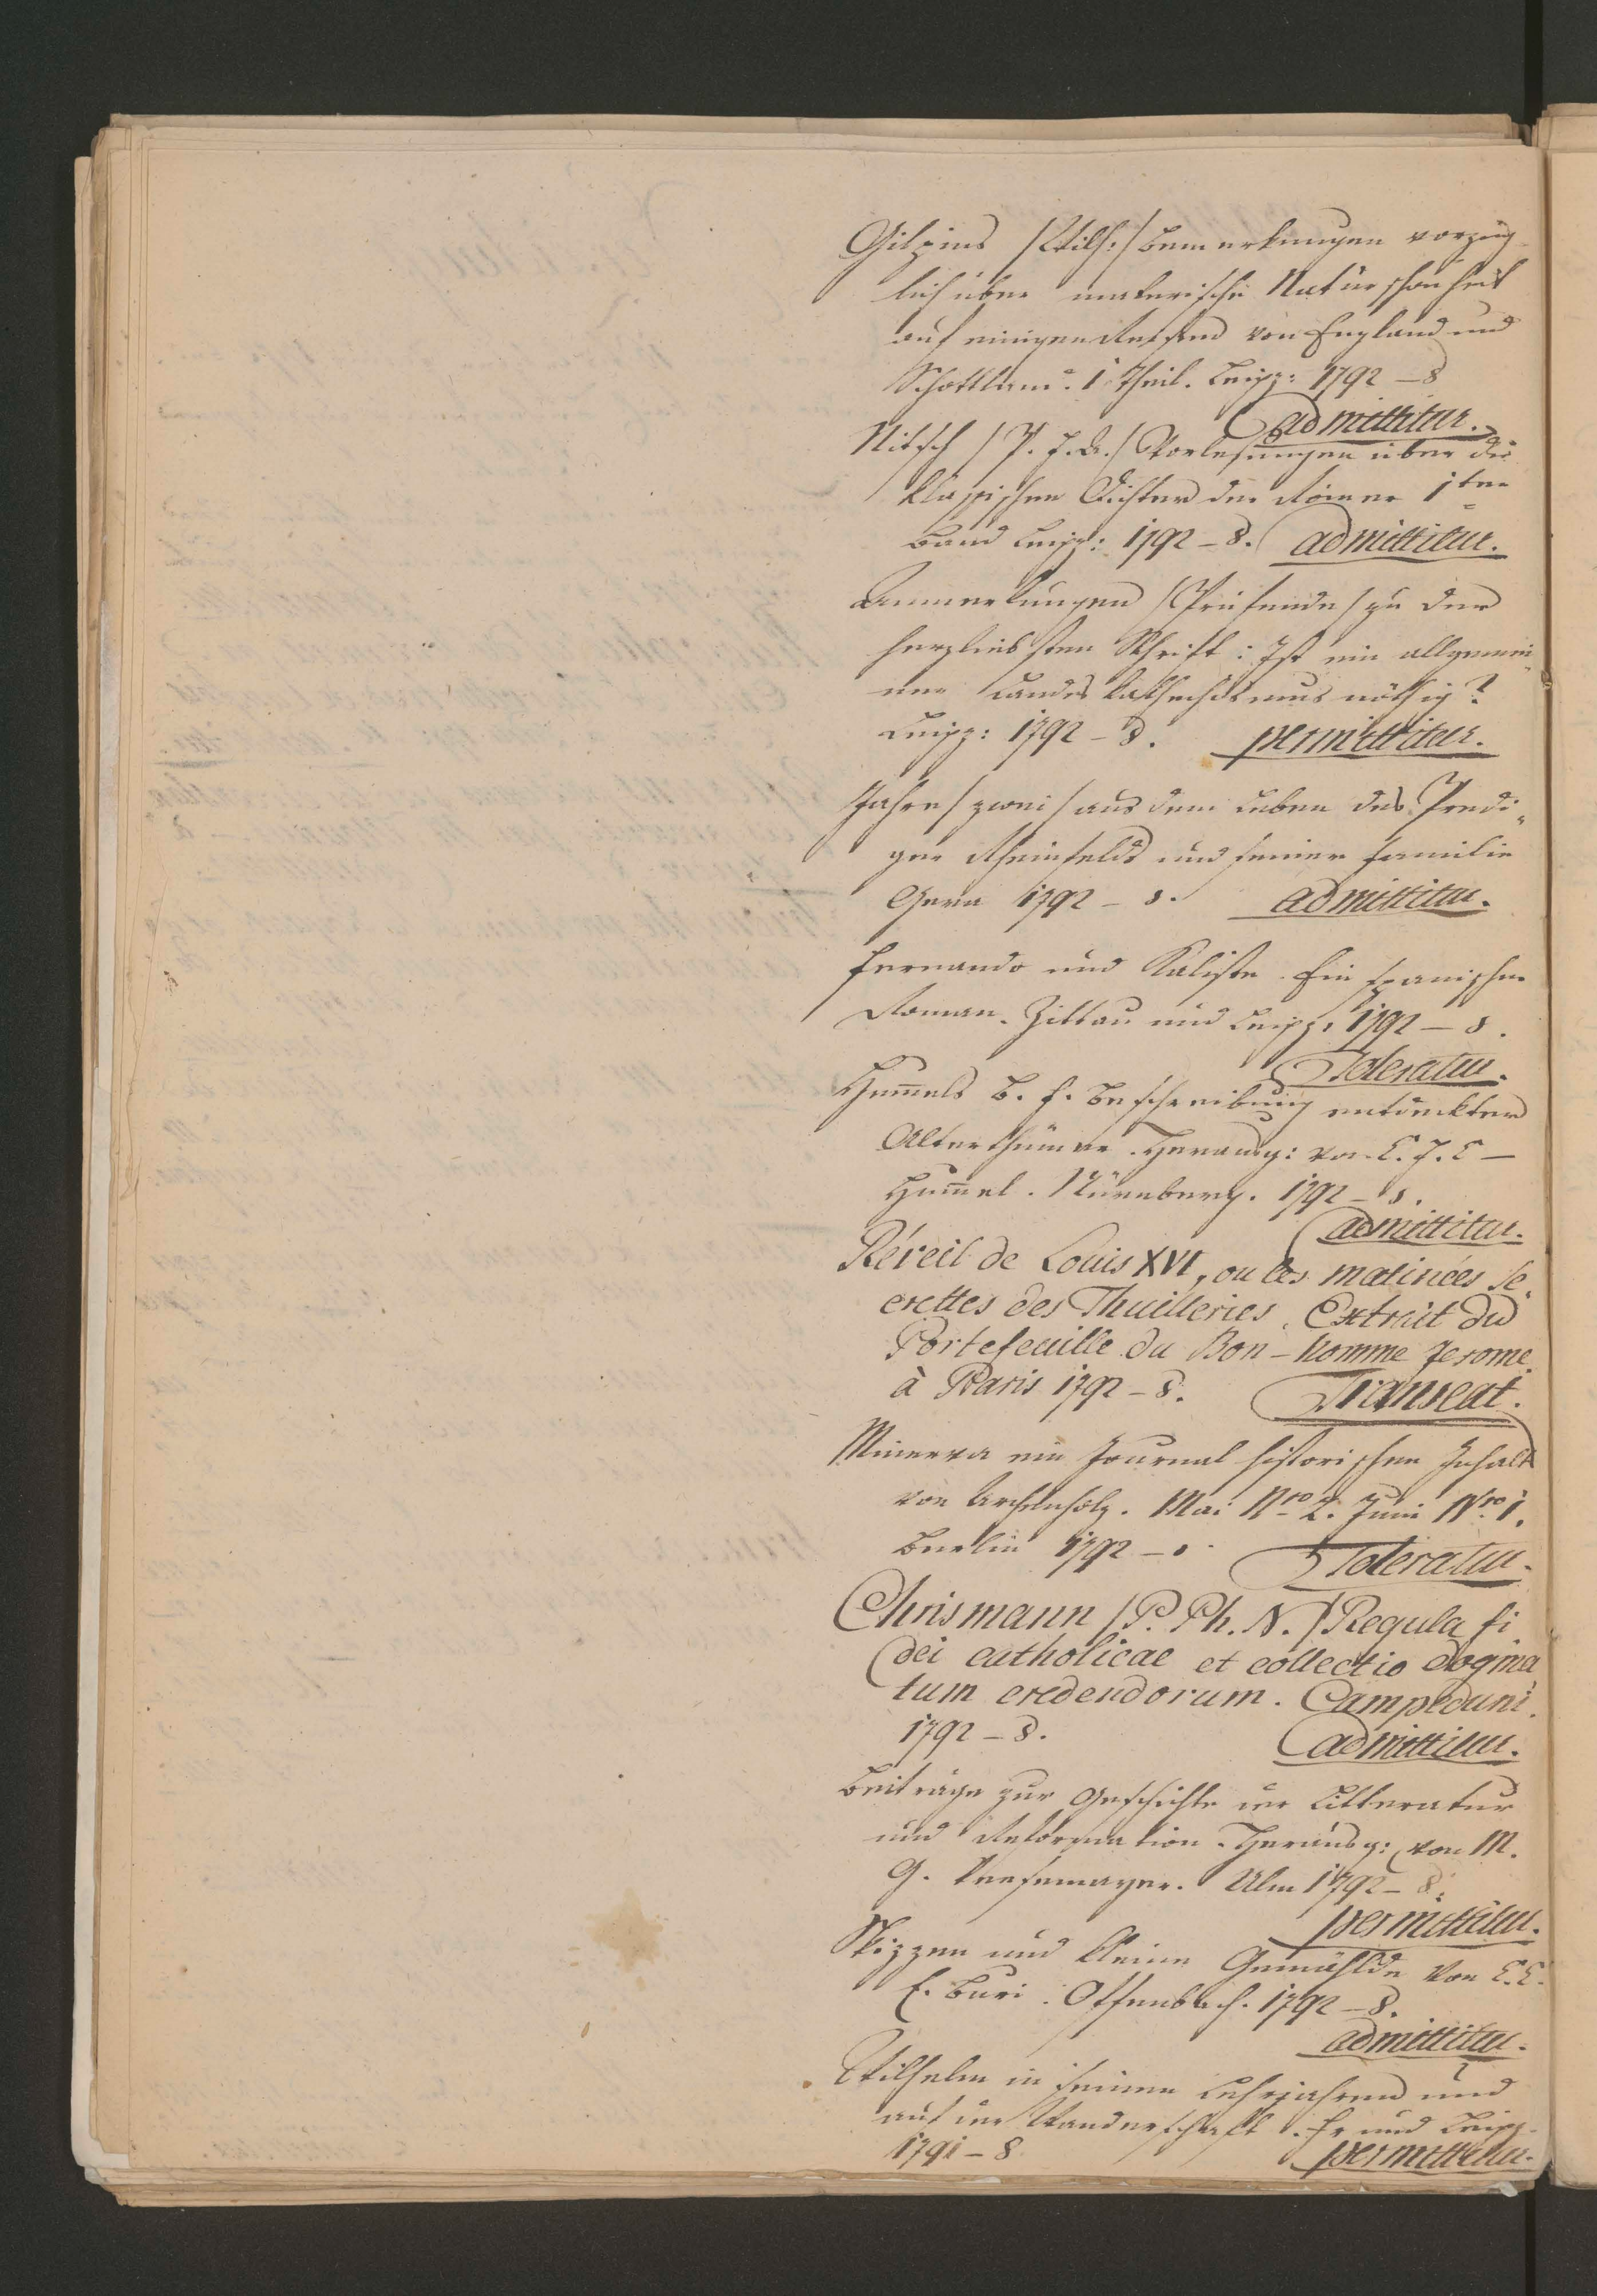 Gilpins /Wilh:/ Bemerkungen vorzüg-
lich über malerische Naturschönheit
auf einigen Reisen von England und
Schottland. 1 Theil. Leipz: 1792 – 8
admittitur.
Nitsch / P. F. A. / Vorlesungen über die
klassischen Dichter der Römer 1ter
Band Leipz: 1792 – 8. admittitur.
Anmerkungen /Prüfende/ zu der
Schrift: Ist ein allgemei-
ner Landes Katechismus nöthig?
Leipz: 1792 – 8. permittitur.
Jahre /zwei/ aus dem Leben des Predi-
ger Rheinfelds und seiner Familie
Gera 1792 – 8. admittitur.
Fernando und Kaliste. Ein spanischer
Roman. Zittau und Leipz: 1792 – 8.
Toleratur.
Hum̄els B. F. Beschreibung entdeckter
Alterthümer. Herausg: von C. F. C –
Hum̄el. Nürnberg. 1792 – 8.
admittitur.
Réveil de Louis XVI, ou les matinées se-
crettes des Thuilleries. Extrait du
Portefeuille du Bon – homme Jerome.
à Paris 1792 – 8. Transeat.
Minerva ein Journal historischen Inhalts
von Archenholz. Mai Nro 2. Juni Nro 1.
Berlin 1792 – 8 Toleratur.
Chrismann / P. Ph. N. / Regula fi
dei catholicae et collectio dogma
tum credendorum. Campoduni.
1792 – 8. admittitur.
Beiträge zur Geschichte der Litteratur
und Reformation. Herausg: von M.
G. Veesemayer. Ulm 1792 – 8.
permittitur.
Skizzen und kleine Gemählde von L. C.
E. Buri. Offenbach. 1792 – 8.
admittitur.
Wilhelm in seinen Lehrjahren und
auf der Wanderschaft. Fr und Leipz.
1791 – 8 permittitur.